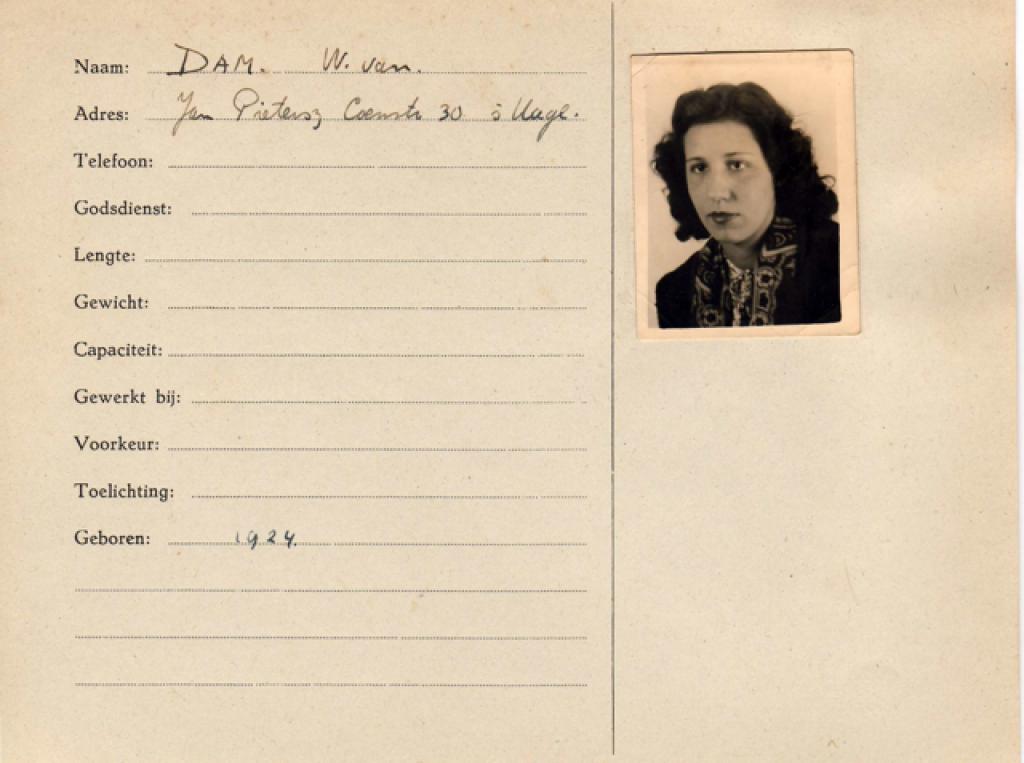 Naam: DAM. W. van.
Adres: Jan Pietersz Coenstr 30 's Hage.
Telefoon:
Godsdienst:
Lengte:
Gewicht:
Capaciteit:
Gewerkt bij:
Voorkeur:
Toelichting:
Geboren: 1924.